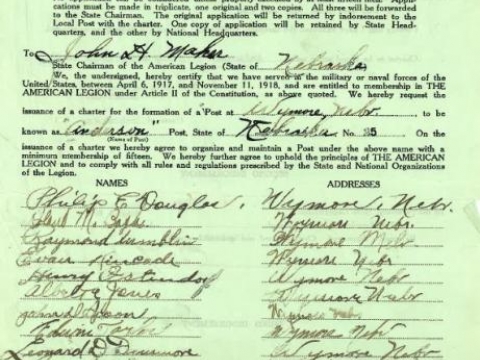 cations must be made in triplicate, one original and two copies. All three will be forwarded
to the State Chairman. The original application will be returned by indorsement to the
Local Post with the charter. One copy of application will be retained by State Head-
quarters, and the other by National Headquarters.
To John H. Maher
State Chairman of the American Legion (State of Nebraska)
We, the undersigned, hereby certify that we have served in the military or naval forces of the
United States, between April 6, 1917, and November 11, 1918, and are entitled to membership in THE
AMERICAN LEGION under Article II of the Constitution, as above quoted. We hereby request the
issuance of a charter for the formation of a "Post at Wymore, Nebr. to be
known as Anderson" Post, State of Nebraska No. 25 On the
(Name of Post)
issuance of a charter we hereby agree to organize and maintain a Post under the above name with a
minimum membership of fifteen. We hereby further agree to uphold the principles of THE AMERICAN LEGION
and to comply with all rules and regulations prescribed by the State and National Organizations
of the Legion.
NAMES ADDRESSES
Philip E. Douglas, Wymore, Nebr.
M. Wymore Nebr.
Raymond Wymore Nebr
Evan Kincade Wymore Nebr
Henry Wymore Nebr
Jones Wymore Nebr
Wymore Nebr.
Wymore Nebr
Leonard D. Dinsmore Wymore Nebr